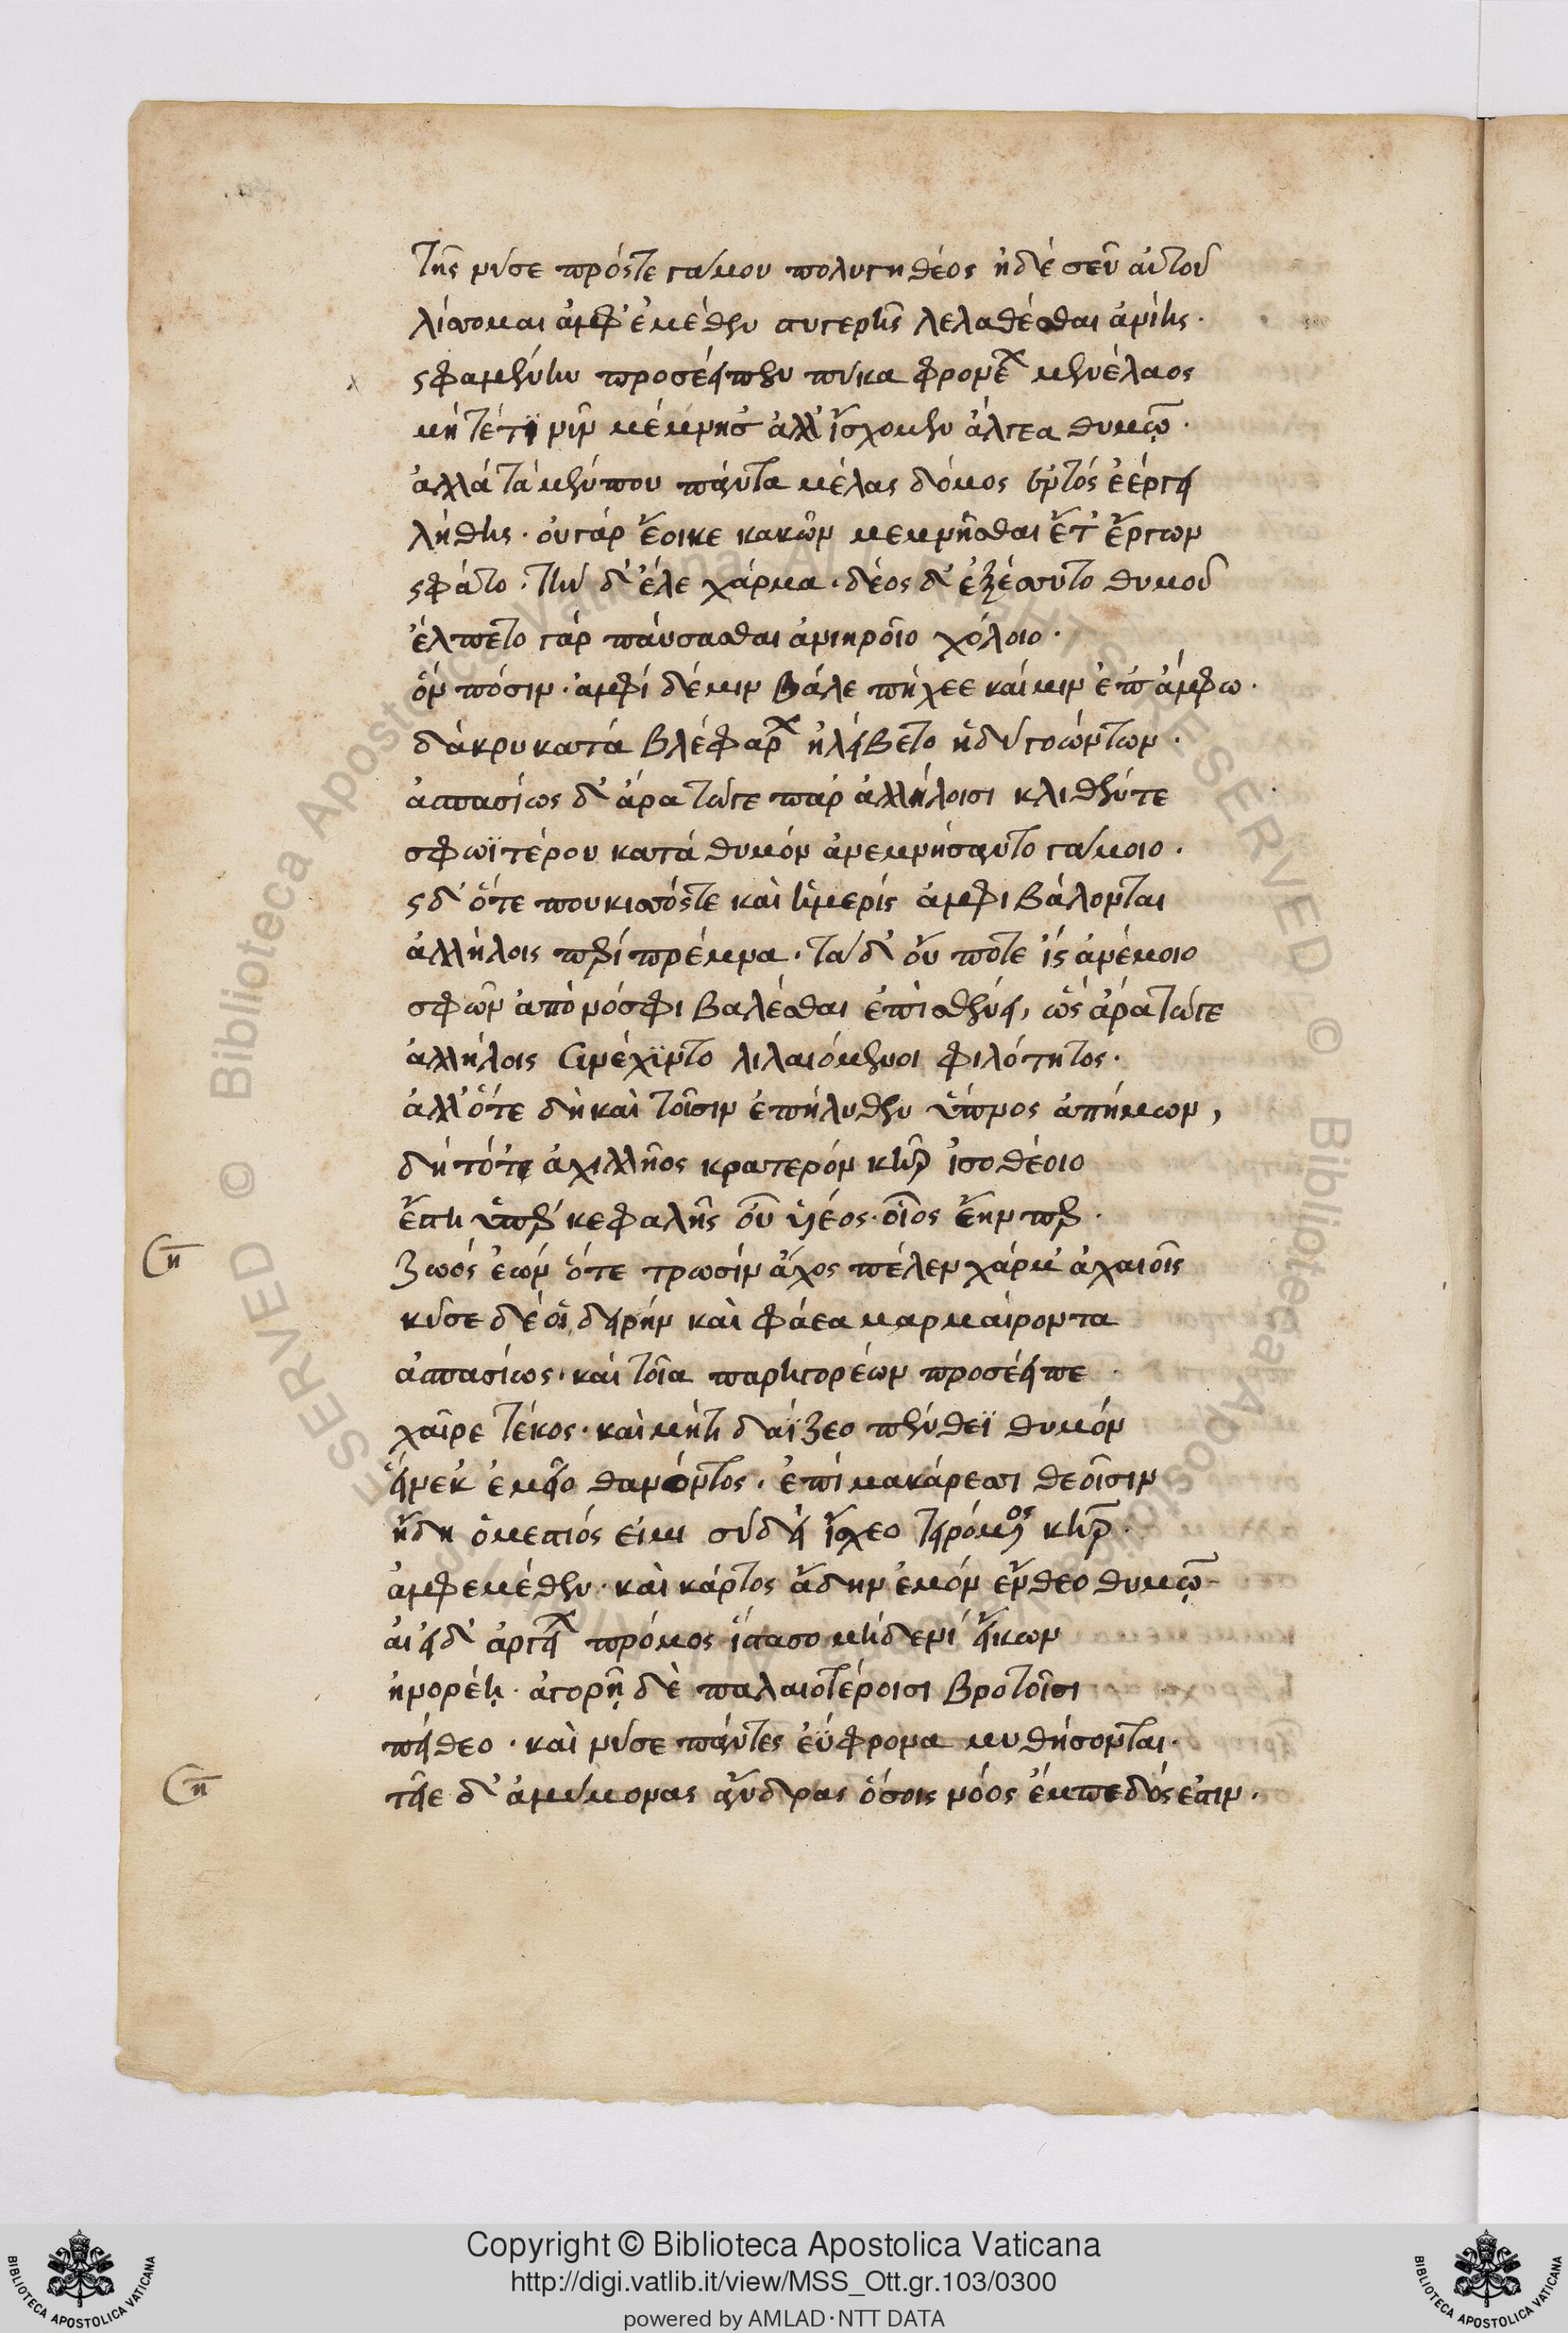 τῆς νῦσε πρόστε γάμου πολυγηθέος ἠδέ σεῦ αὐτοῦ
λίσσομαι ἀμφ' ἐμέθεν στυγερῆς λελαθέσθαι ἀνίης.
ς φαμένην προσέειπεν πύκα φρονέων μενέλαος
μή τέτι νῦν μέμνησ' ἀλλ' ἴσχομεν ἄλγεα θυμῷ.
ἀλλά τὰ μέν που πάντα μέλας δόμος ἐντός ἐέργει
λήθης. οὐ γάρ ἔοικε κακῶν μεμνῆσθαι ἔτ' ἔργων
ς φάτο. τήν δ' ἕλε χάρμα. δέος δ' ἐξέσσυτο θυμοῦ
ἔλπετο γάρ παύσασθαι ἀνιηροῖο χόλοιο.
ὃν πόσιν. ἀμφί δέ μιν βάλε πήχεε καί μιν ἐπ' ἄμφω.
δάκρυ κατά βλεφάρων ἠλείβετο ἡδύ γοώντων.
ἀσπασίως δ' ἄρα τώγε παρ' ἀλλήλοισι κλιθέντε
σφωϊτέρου κατά θυμόν ἀνεμνήσαντο γάμοιο.
ς δ' ὅτε που κισσόστε καὶ ἡμερίς ἀμφιβάλονται
ἀλλήλοις περί πρέμνα. τά δ' οὔ ποτε ἴς ἀνέμοιο
σφῶν ἀπὸ νόσφι βαλέσθαι ἐπὶ σθένει, ὥς ἄρα τώγε
ἀλλήλοις συνέχϊντο λιλαιόμενοι φιλότητος.
ἀλλ' ὅτε δὴ καὶ τοῖσιν ἐπήλυθεν ὕπνος ἀπήμων,
δή τότε ἀχιλλῆος κρατερόν κῆρ ἰσοθέοιο
ἔστη ὑπέρ κεφαλῆς οὗ υἱέος. οἷος ἔην περ.
ζωός ἐών ὅτε τρωσίν ἄχος πέλεν χάρμ' ἀχαιοῖς
κύσε δέ οἱ δειρήν καὶ φάεα μαρμαίροντα
ἀσπασίως. καί τοῖα παρηγορέων προσέειπε.
χαῖρε τέκος. καὶ μήτι δαΐζεο πένθεϊ θυμόν
εἵνεκ' ἐμεῖο θανόντος. ἐπί μακάρεσσι θεοῖσιν
ἤδη ὁμέστιός εἰμι σύ δ' ἴσχεο τειρόμενος κῆρ.
ἀμφ' ἐμέθεν. καὶ κάρτος ἄδην ἐμόν ἔνθεο θυμῷ
αἰεί δ' ἀργείων πρόμος ἵστασο μηδενί εἴκων
ἠνορέῃ. ἀγορῇ δὲ παλαιοτέροισι βροτοῖσι
πείθεο. καὶ νῦσε πάντες ἐΰφρονα μυθήσονται.
τῖε δ' ἀμύμονας ἄνδρας ὅσοις νόος ἔμπεδός ἐστιν.
Copyright © Biblioteca Apostolica Vaticana
http://digi.vatlib.it/view/MSS_Ott.gr.103/0300
powered by AMLAD·NTT DATA